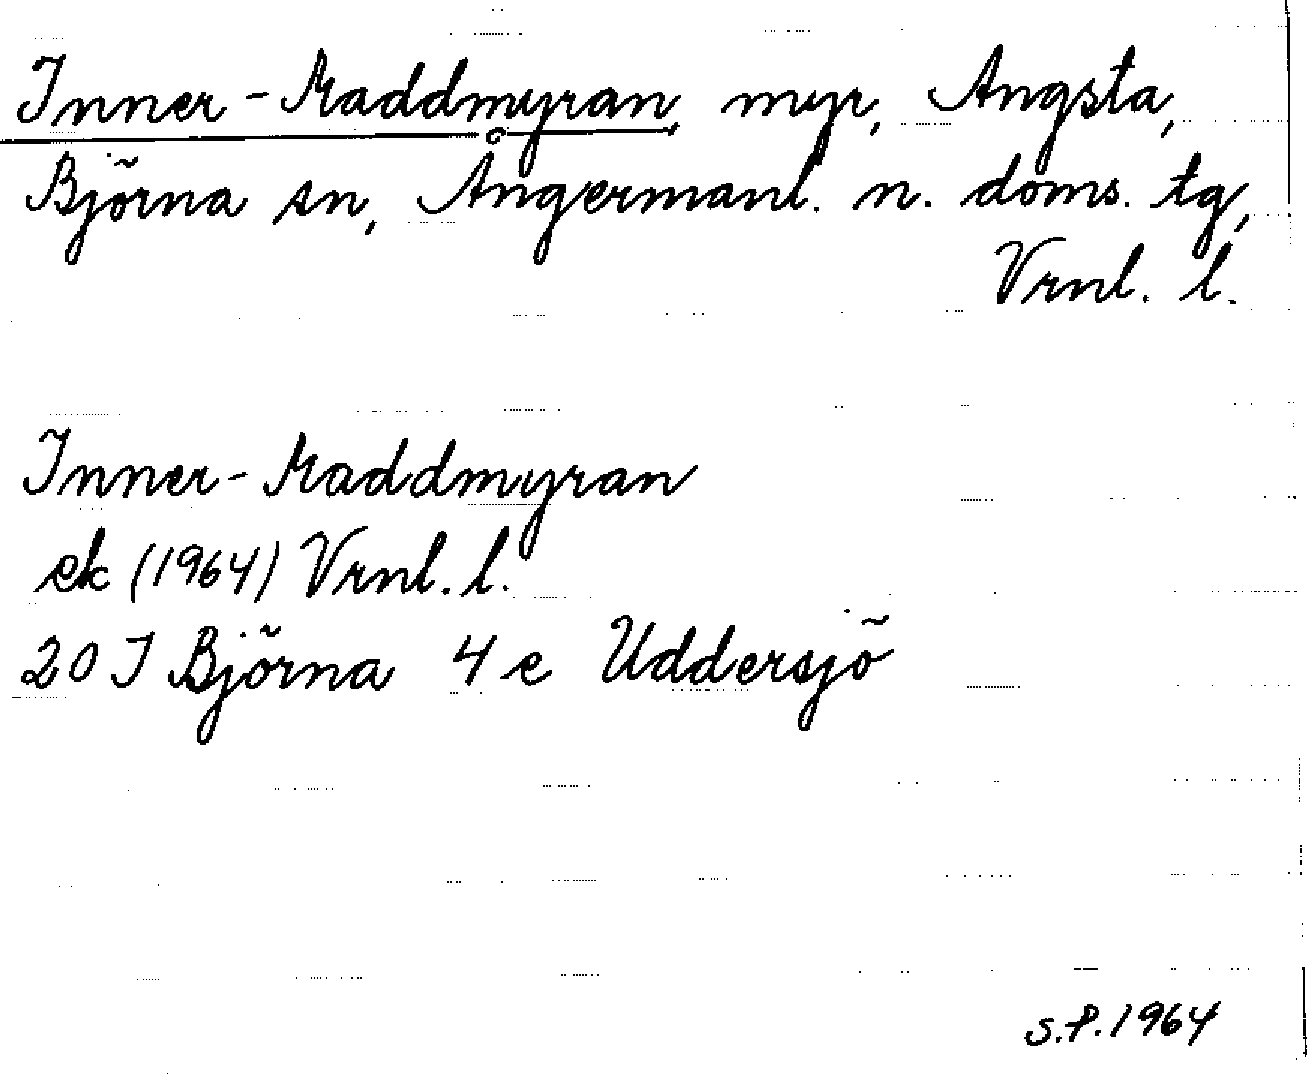 Inner-Kaddmyran, myr, Angsta,
Björna sn, Ångermanl. n. doms. tg,
Vrnl. l.
Inner-Kaddmyran
ek (1964) Vrnl. l.
20 I Björna 4 e Uddersjö
S.P. 1964